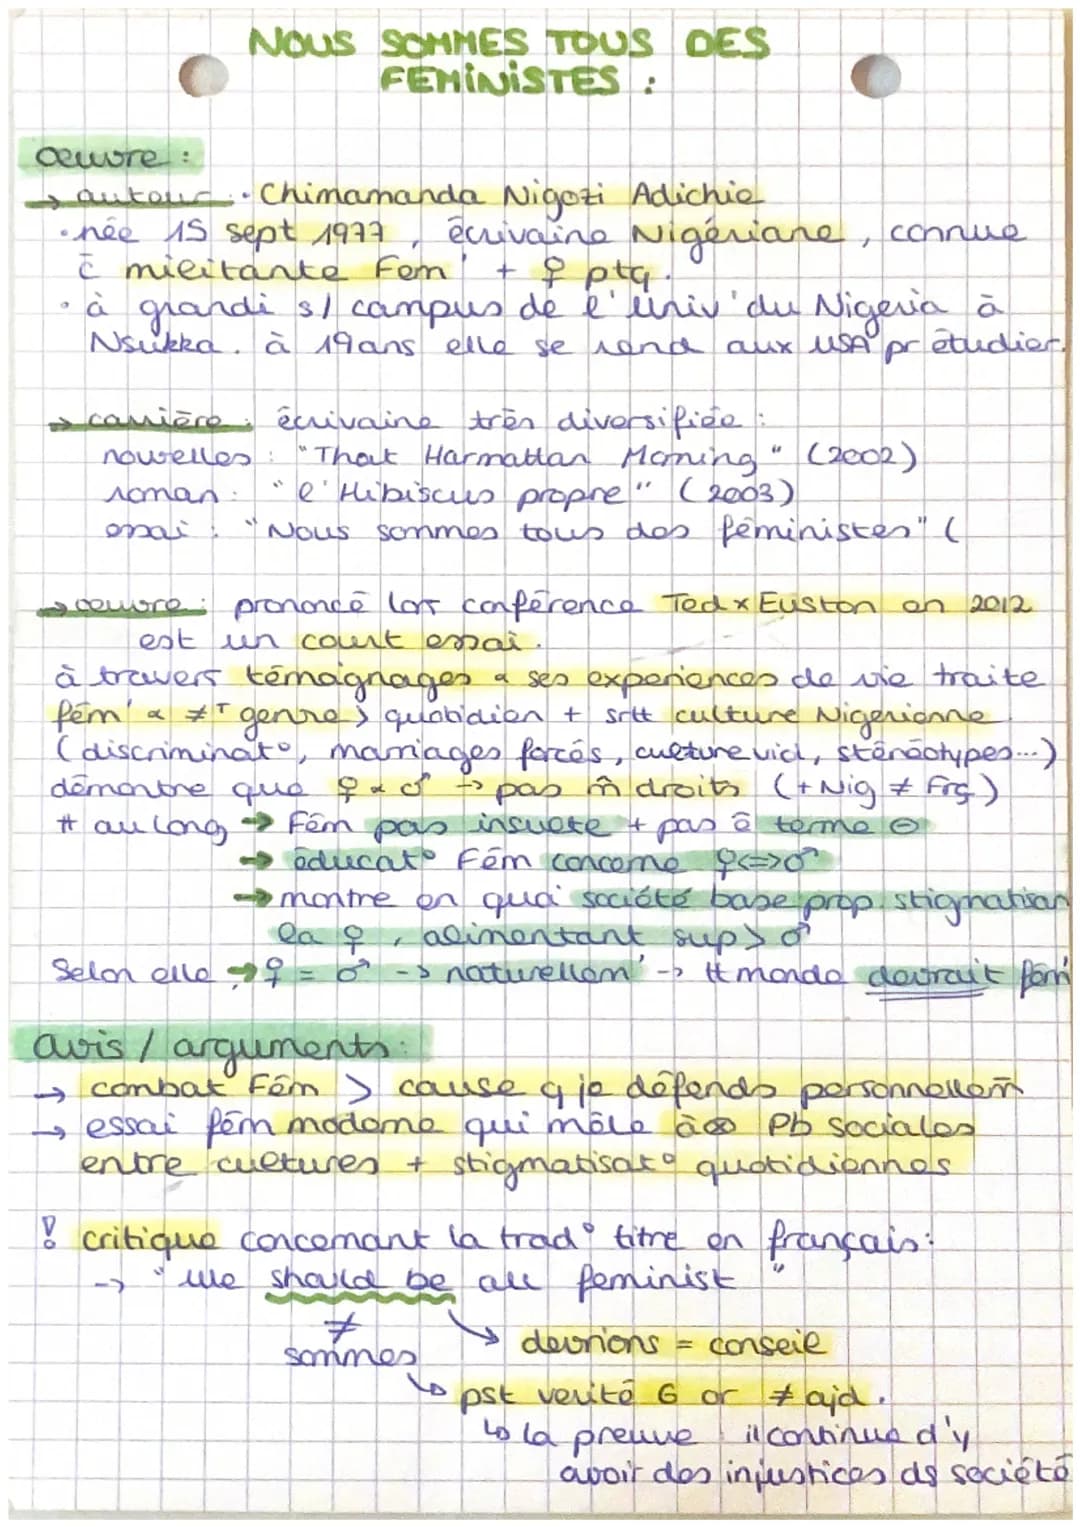 NOUS SOMMES TOUS DES
FEMINISTES :
œuvre :
→ auteur : · Chimamanda Nigozi Adichie
· née 15 sept 1977, écrivaine Nigériane, connue
c̄ militante Fem' + ♀ ptq.
· à grandi s/ campus de l'univ' du Nigeria à
Nsukka. à 19ans elle se rend aux USA pr étudier.
→ carrière : écrivaine très diversifiée :
nouvelles : "That Harmattan Morning" (2002)
roman : "l'Hibiscus propre" (2003)
essai : "Nous sommes tous des féministes" (
→ œuvre : prononcé lors conférence Ted x Euston en 2012
est un court essai.
à travers témoignages & ses experiences de vie traite
fém' & ≠T genre > quotidien + srtt culture Nigerianne
(discriminat°, marriages forcés, culture viol, stéréotypes...)
démontre que ♀ & ♂ → pas m̂ droits (+ Nig ≠ Frç)
tt au long → Fém pas insulte + pas ê terme ⊖
→ éducat° Fém concerne ♀<=>♂
→ montre en quoi société base prop. stigmatisan
la ♀, alimentant sup> ♂
Selon elle → ♀ = ♂ -> naturellem' -> tt monde devrait fém'
avis / arguments :
→ combat Fém > cause q je défends personnellem̄
→ essai fém moderne qui mêle à∞ Pb sociales
entre cultures + stigmatisat° quotidiennes
! critique concernant la trad° titre en français :
→ "We should be all feminist"
≠
sommes
↘ devrions = conseil
↳ pst verité G or ≠ ajd.
↳ la preuve il continue d'y
avoir des injustices ds société